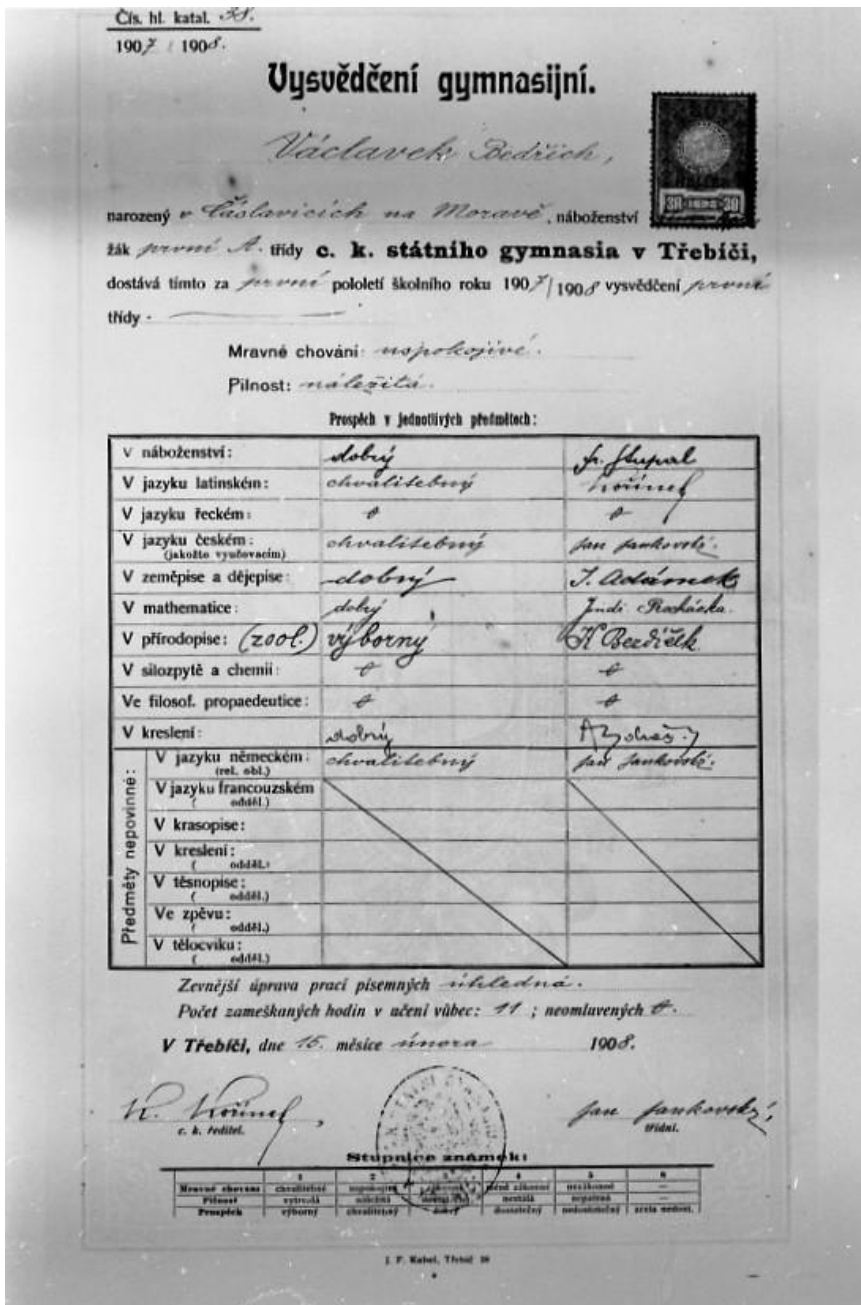 Čís. hl. katal. 38.
1907 / 1908.
Vysvědčení gymnasijní.
Václavek Bedřich,
narozený v Čáslavicích na Moravě, náboženství
žák první A. třídy c. k. státního gymnasia v Třebíči,
dostává tímto za první pololetí školního roku 1907/1908 vysvědčení první
třídy.
Mravné chování: uspokojivé.
Pilnost: náležitá.
Prospěch v jednotlivých předmětech:
V náboženství: dobrý
V jazyku latinském: chvalitebný Kořínek
V jazyku řeckém: 0 0
V jazyku českém: chvalitebný Jan Jankovský.
(jakožto vyučovacím)
V zeměpise a dějepise: dobrý J. Adámek
V mathematice: dobrý Jindř. Procházka.
V přírodopise: (zool.) výborný K Bezdíček
V silozpytě a chemii: 0 0
Ve filosof. propaedeutice: 0 0
V kreslení: dobrý
Předměty nepovinné:
V jazyku německém: chvalitebný Jan Jankovský.
(rel. obl.)
V jazyku francouzském
( odděl.)
V krasopise:
V kreslení:
( odděl.)
V těsnopise:
( odděl.)
Ve zpěvu:
( odděl.)
V tělocviku:
( odděl.)
Zevnější úprava prací písemných úhledná.
Počet zameškaných hodin v učení vůbec: 11; neomluvených 0.
V Třebíči, dne 15. měsíce února 1908.
K. Kořínek, Jan Jankovský,
c. k. ředitel. třídní.
Stupnice známek:
1 2 3 4 5 6
Mravné chování chvalitebné uspokojivé zákonné méně zákonné nezákonné —
Pilnost vytrvalá náležitá nestálá nepatrná —
Prospěch výborný chvalitebný dobrý dostatečný nedostatečný zcela nedost.
J. F. Kubeš, Třebíč